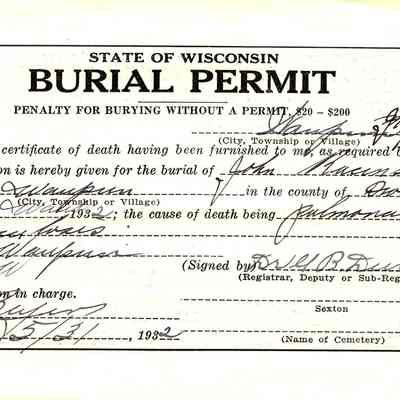 STATE OF WISCONSIN
BURIAL PERMIT
PENALTY FOR BURYING WITHOUT A PERMIT, $20 – $200
Waupun
(City, Township or Village)
certificate of death having been furnished to me, as required
on is hereby given for the burial of John
Waupun in the county of
(City, Township or Village)
1932; the cause of death being pulmona
Waupun
(Signed by) Dr
(Registrar, Deputy or Sub-Reg
on in charge.
Sexton
5/31, 1932
(Name of Cemetery)